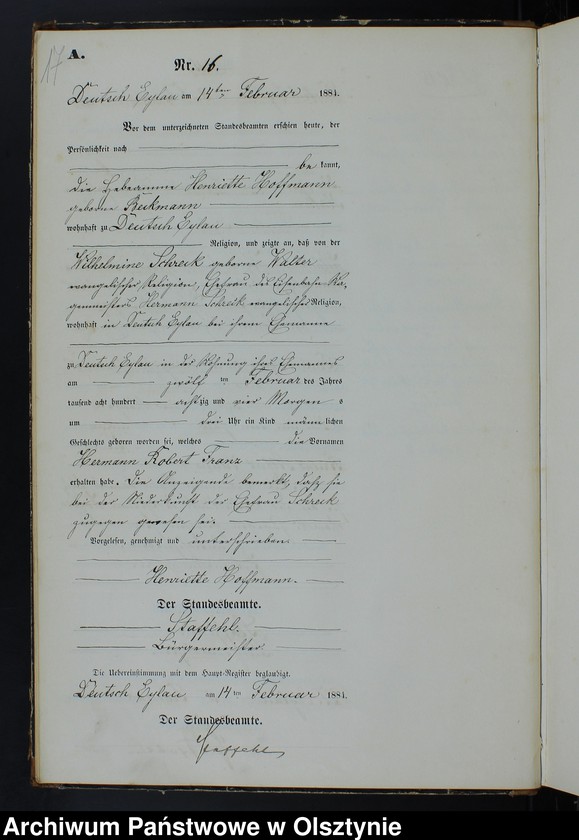 17
A.
Nr. 16.
Deutsch Eylau am 14ten Februar 1884.
Vor dem unterzeichneten Standesbeamten erschien heute, der
Persönlichkeit nach
bekannt,
die Hebeamme Henriette Hoffmann
geborne Beckmann
wohnhaft zu Deutsch Eylau
Religion, und zeigte an, daß von der
Wilhelmine Schreik geborne Walter
evangelischer Religion, Ehefrau des Eisenbahn Wa-
genmeisters Hermann Schreik evangelischer Religion,
wohnhaft in Deutsch Eylau bei ihrem Ehemanne
zu Deutsch Eylau in der Wohnung ihres Ehemannes
am zwölf ten Februar des Jahres
tausend acht hundert achtzig und vier Morgen s
um drei Uhr ein Kind männlichen
Geschlechts geboren worden sei, welches die Vornamen
Hermann Robert Franz
erhalten habe. Die Anzeigende bemerkt, daß sie
bei der Niederkunft der Ehefrau Schreik
zugegen gewesen sei.
Vorgelesen, genehmigt und unterschrieben
Henriette Hoffmann.
Der Standesbeamte.
Staffehl.
Bürgermeister
Die Uebereinstimmung mit dem Haupt-Register beglaubigt.
Deutsch Eylau am 14ten Februar 1884.
Der Standesbeamte.
Staffehl
Archiwum Państwowe w Olsztynie